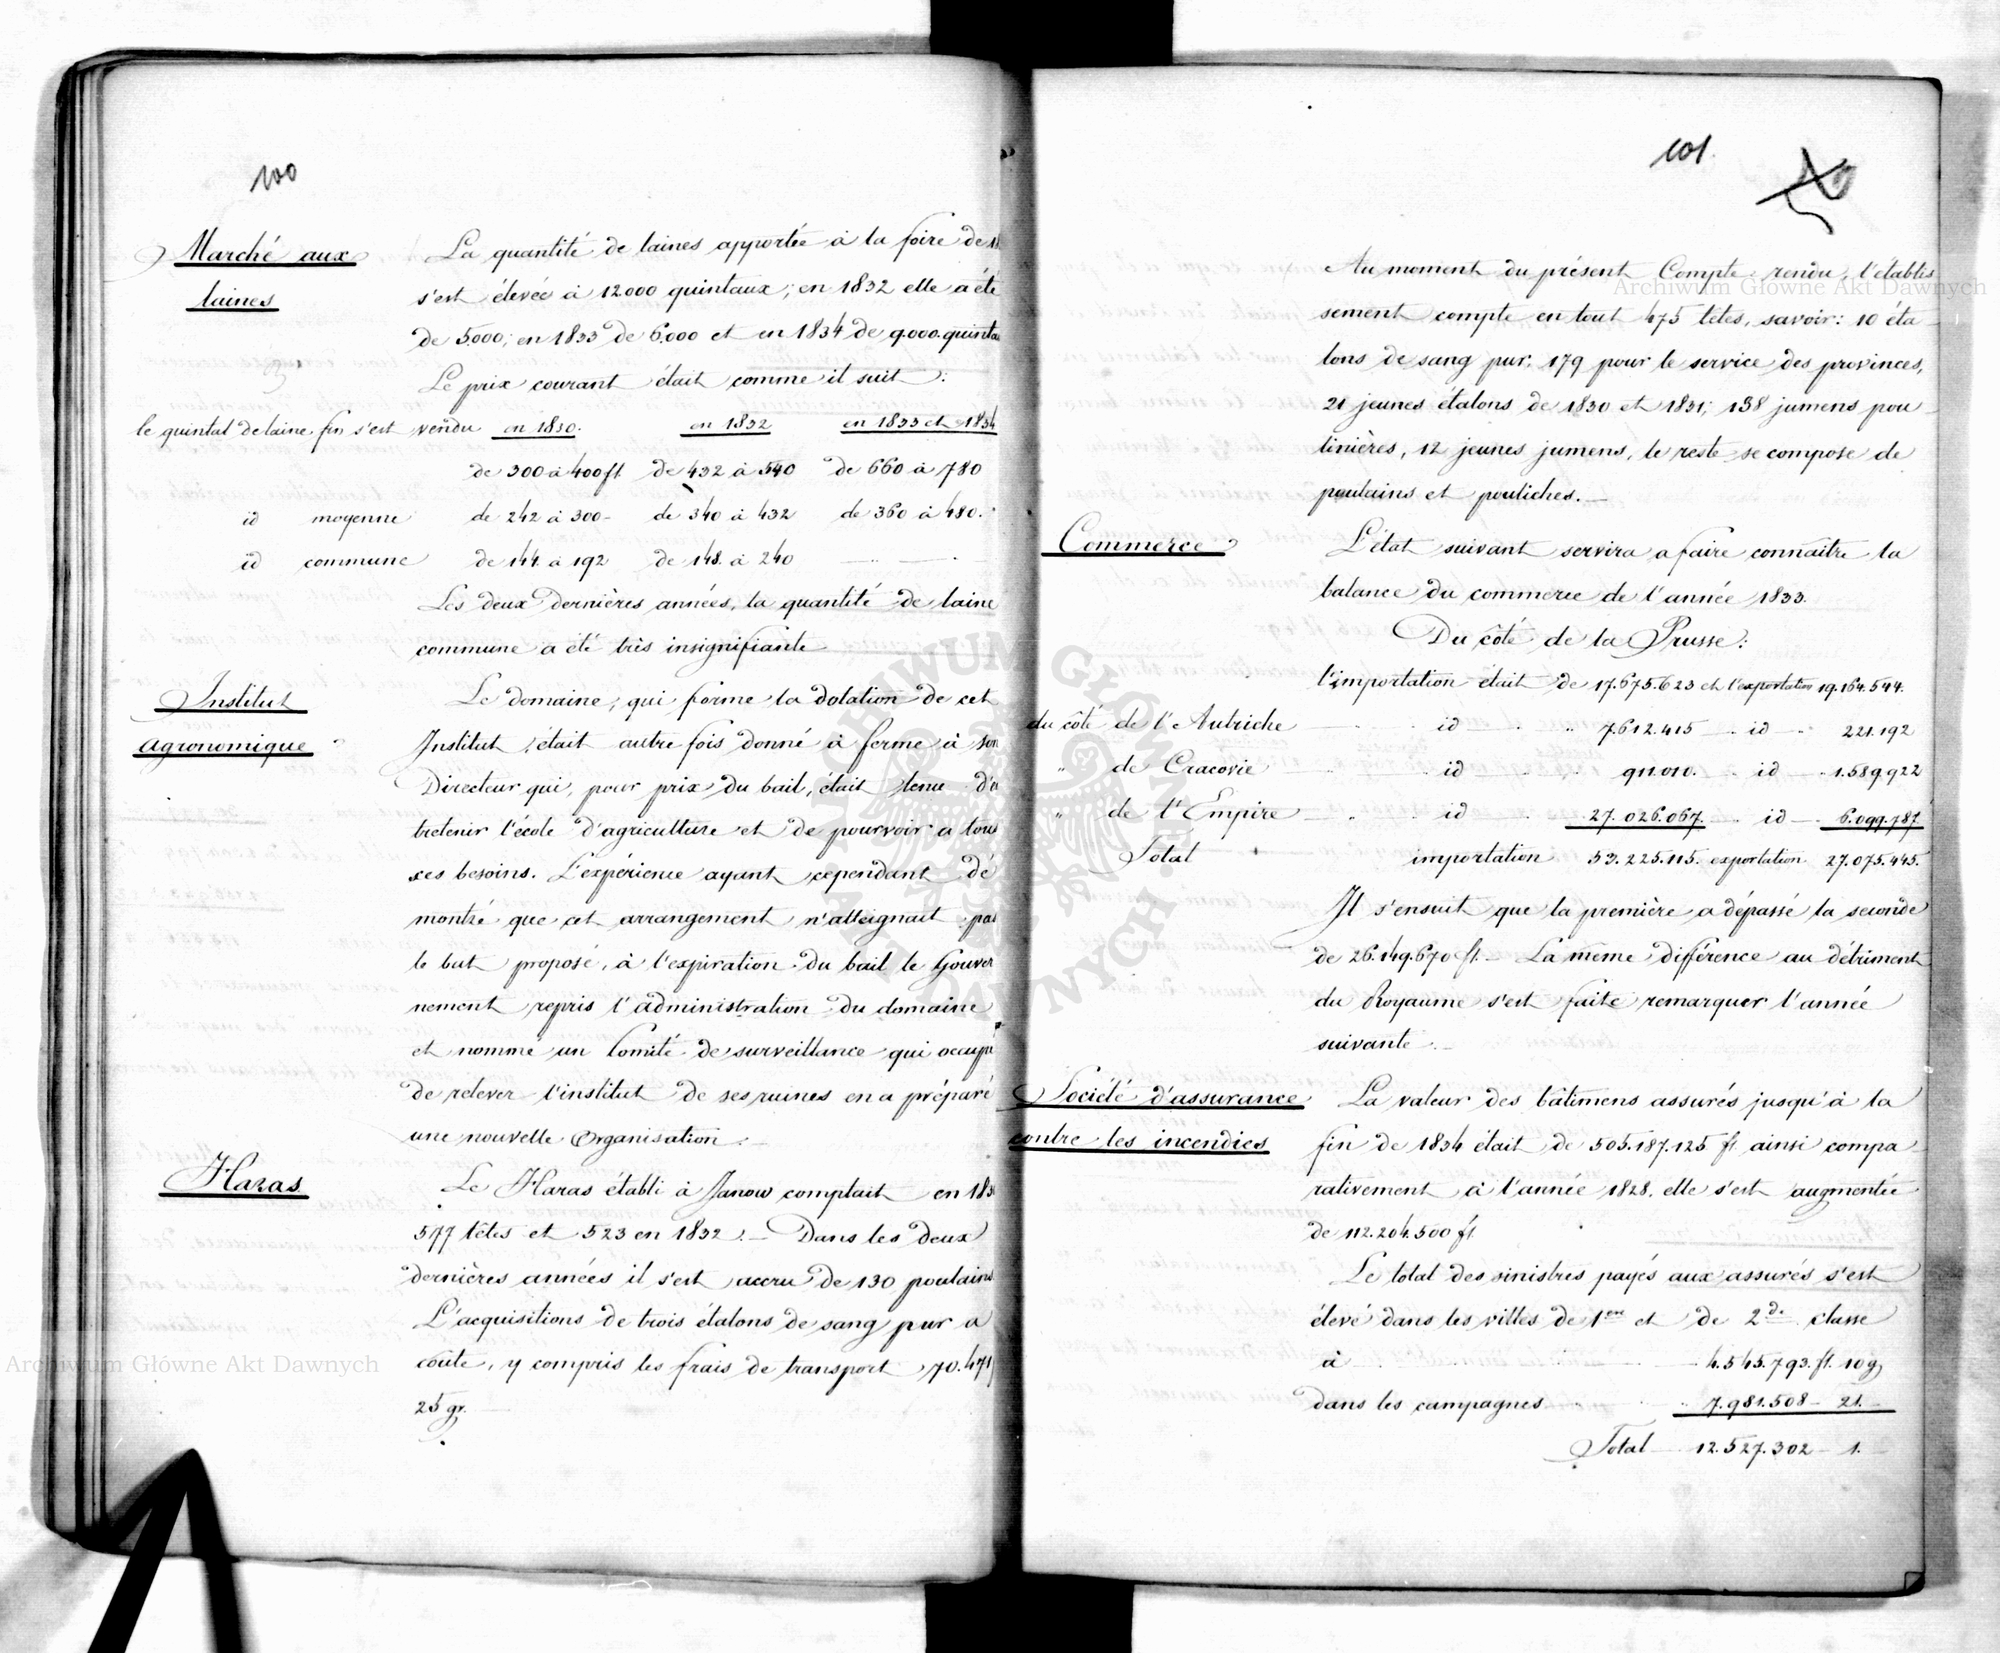 100
Marché aux
laines
La quantité de laines apportée à la foire de
s'est élevée à 12000 quintaux; en 1832 elle a été
de 5000; en 1833 de 6000 et en 1834 de 9.000. quinta
Le prix courant était comme il suit:
le quintal de laine fin s'est vendu en 1830. en 1832 en 1833 et 1834
de 300 à 400 ft de 432 à 540 de 660 à 780
id moyenne de 242 à 300 - de 340 à 432 de 360 à 480.
id commune de 144 à 192 de 148 à 240
Les deux dernières années, la quantité de laine
commune a été très insignifiante
Institut
agronomique
Le domaine, qui forme la dotation de cet
Institut, était autre fois donné à ferme à son
Directeur qui, pour prix du bail, était tenu d'e
tretenir l'école d'agriculture et de pourvoir a tous
ses besoins. L'expérience ayant cependant dé
montré que cet arrangement n'atteignait pas
le but proposé, à l'expiration du bail le Gouver
nement repris l'administration du domaine
et nommé un Comité de surveillance qui occupé
de relever l'institut de ses ruines en a préparé
une nouvelle Organisation. -
Haras
Le Haras établi à Janow comptait en 183
577 têtes et 523 en 1832. - Dans les deux
dernières années il s'est accru de 130 poulains
L'acquisitions de trois étalons de sang pur a
coûte, y compris les frais de transport 70.471
25 gr.
101.
Au moment du présent Compte rendu, l'établis
sement compte en tout 475 têtes, savoir: 10 éta
lons de sang pur; 179 pour le service des provinces,
21 jeunes étalons de 1830 et 1831; 138 jumens pou
linières, 12 jeunes jumens, le reste se compose de
poulains et pouliches. -
Commerce
L'état suivant servira a faire connaître la
balance du commerce de l'année 1833.
Du côté de la Prusse:
l'importation était de 17.675.623 et l'exportation 19.164.544.
du côté de l'Autriche id 7.612.415 id 221.192
" de Cracovie id 911.010. id 1.589.922
" de l'Empire id 27.026.067. id 6.099.787
Total importation 53.225.115. exportation 27.075.445.
Il s'ensuit que la première a dépassé la seconde
de 26.149.670 ft. - La même différence au détriment
du Royaume s'est faite remarquer l'année
suivante. -
Société d'assurance
contre les incendies
La valeur des bâtimens assurés jusqu'à la
fin de 1834 était de 505.187.125 ft ainsi compa
rativement à l'année 1828, elle s'est augmentée
de 112.204.500 ft
Le total des sinistres payés aux assurés s'est
élevé dans les villes de 1ere et de 2de classe
à 4.545.793. ft. 10 g
dans les campagnes 7.981.508 - 21. -
Total 12.527.302 - 1.
Archiwum Główne Akt Dawnych
Archiwum Główne Akt Dawnych
ARCHIWUM GŁÓWNE AKT DAWNYCH